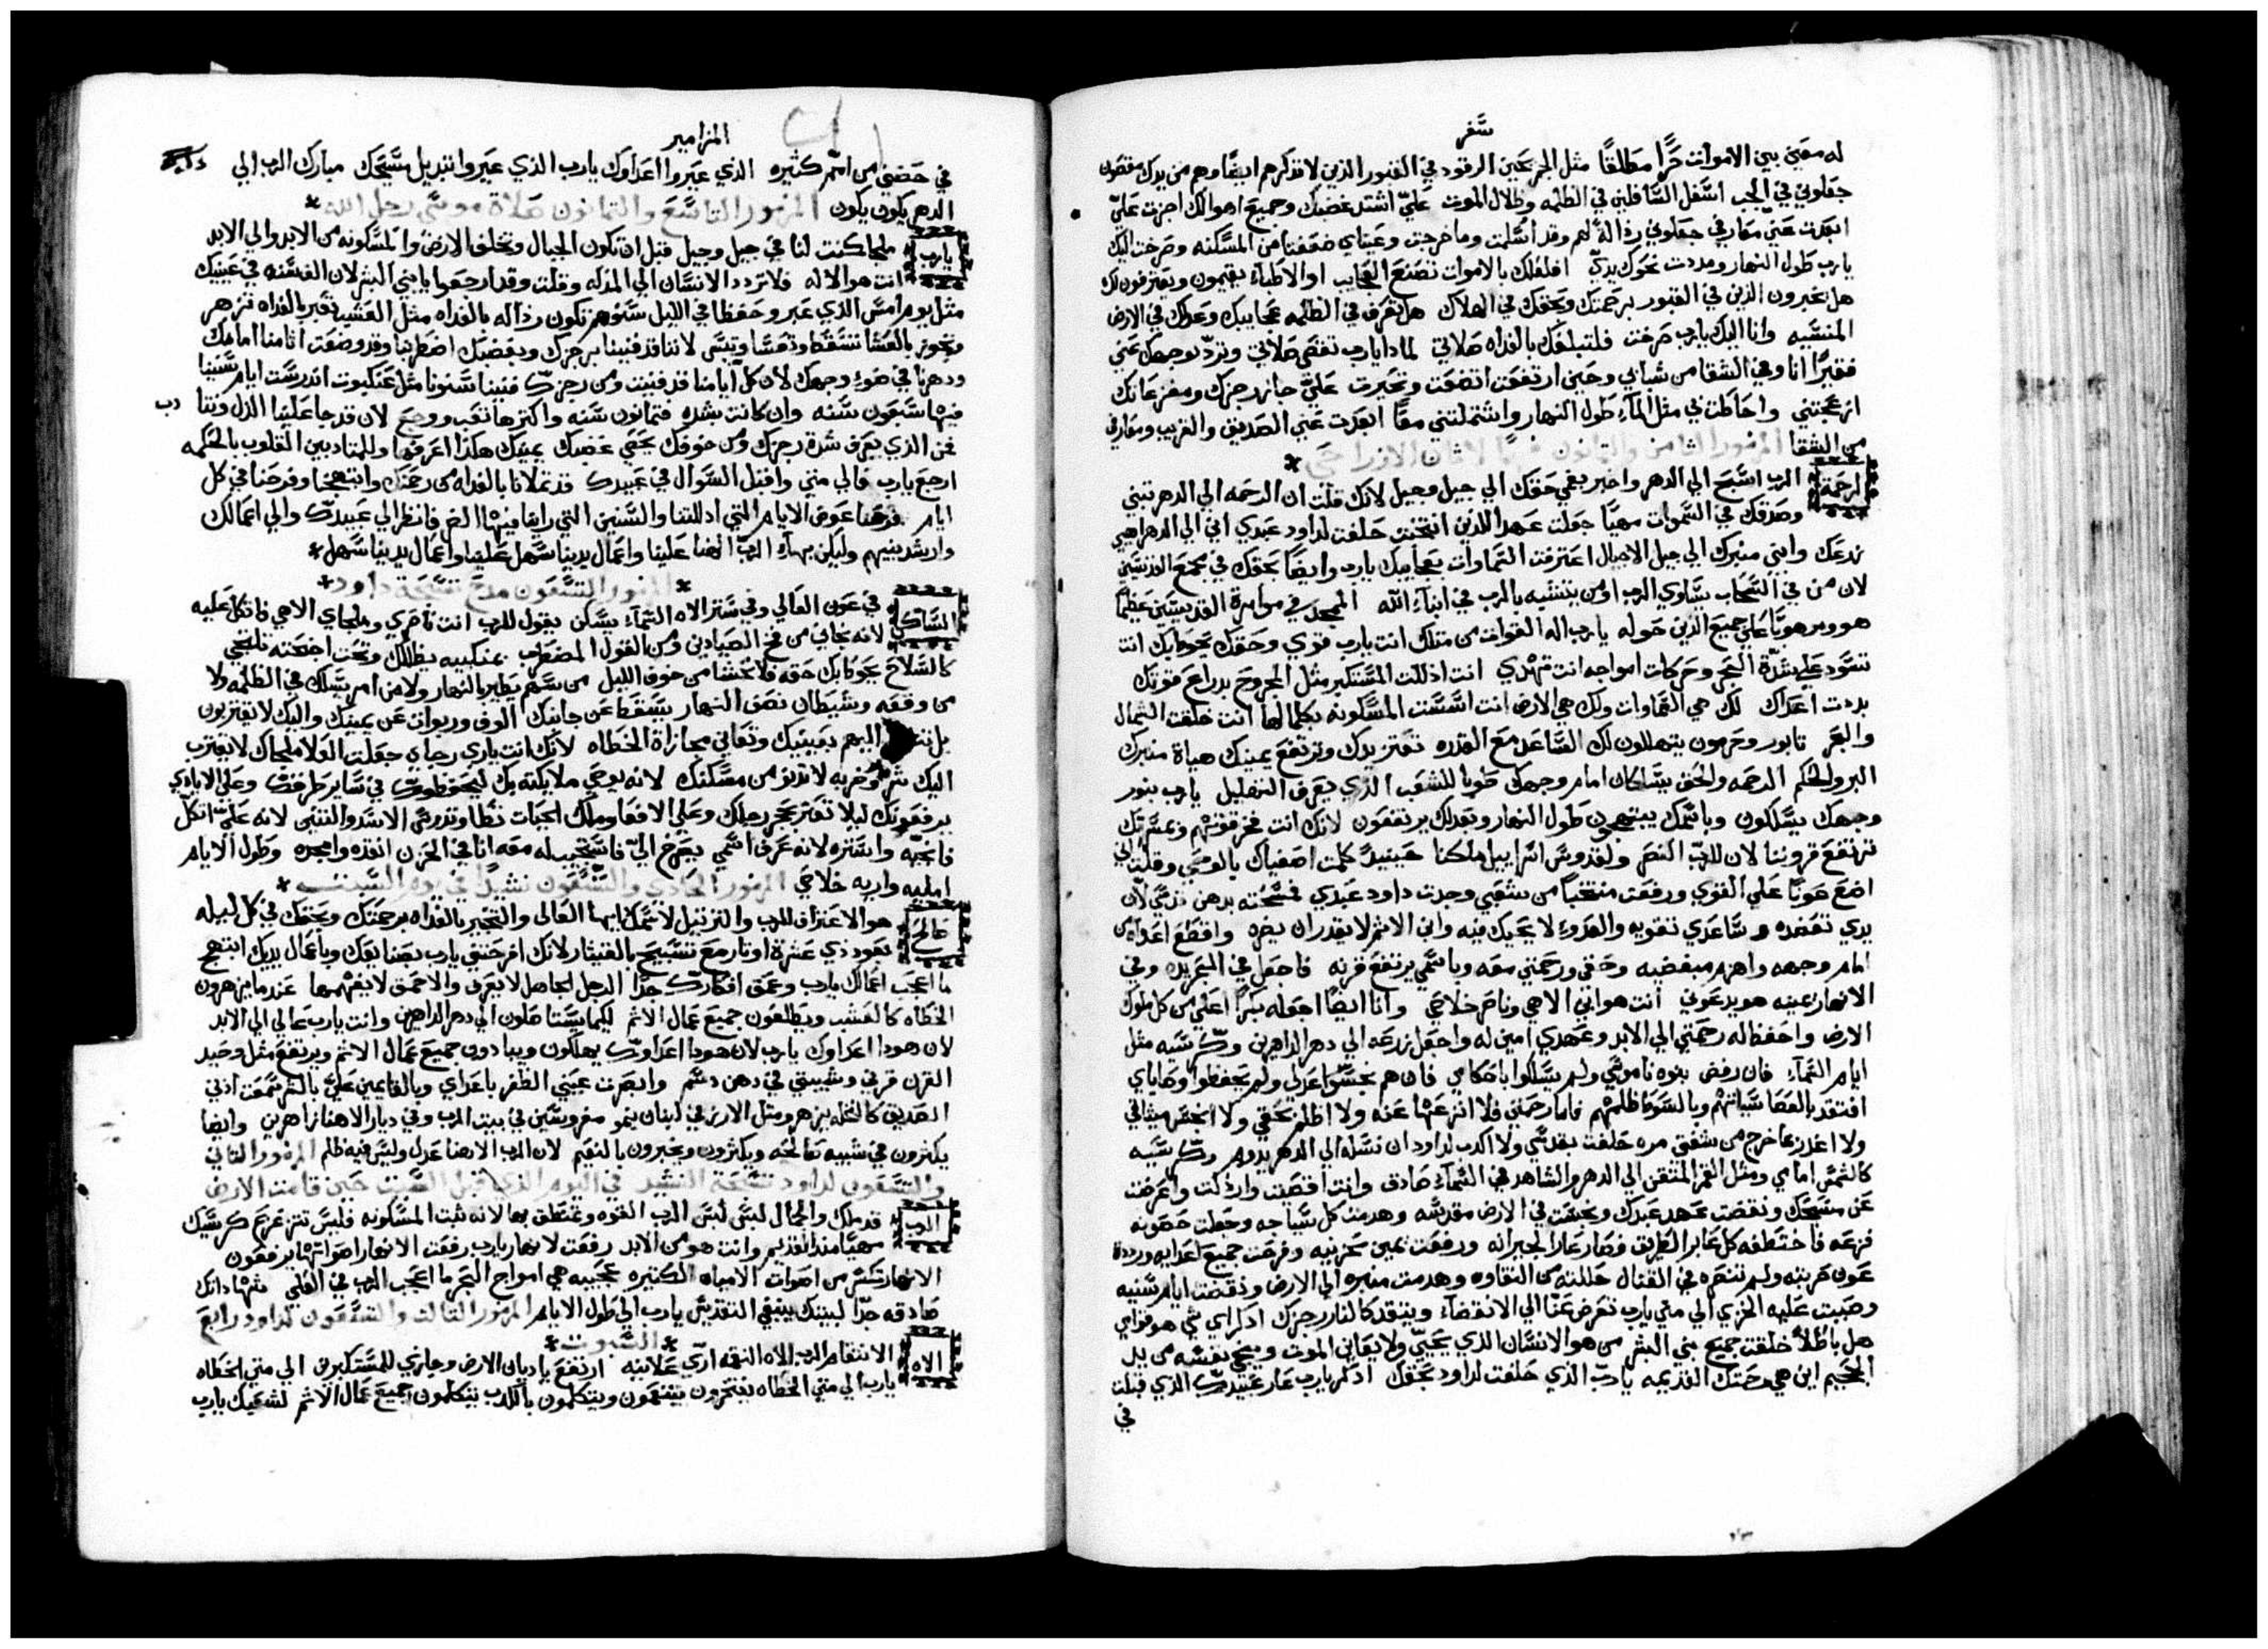 سفر
له معين بين الاموات حرًا مطلقًا مثل الجرحين الرقود في القبور الذين لا تذكرهم ايضًا وهم من يدك مقصون
جعلوني في الجب اسفل السافلين في الظلمه وظلال الموت عليّ اشتد غضبك وجميع اهوالك اجزت عليّ
ابعدت عني معارفي جعلوني رذالة لهم وقد اسلمت وما خرجت وعيناي ضعفتا من المسكنه وصرخت اليك
يا رب طول النهار ومددت نحوك يديّ افلعلك بالاموات تصنع العجايب او الاطباء يقيمون ويعترفون لك
هل يخبرون الذين في القبور برحمتك وبحقك في الهلاك هل تعرف في الظلمه عجايبك وعدلك في الارض
المنسيه وانا اليك يارب صرخت فلتبلغك بالغداه صلاتي لماذا يارب تقصي صلاتي وترد وجهك عني
فقيرًا انا وفي الشقا من شبابي وحين ارتفعت اتضعت وتحيرت عليّ جاز رجزك ومفزعاتك
ازعجتني واحاطت بي مثل الماء طول النهار واشتملتني معًا ابعدت عني الصديق والقريب ومعارفي
من الشقا المزمور الثامن والثمانون فهمًا لاثان الازراحي
لرحمة الرب اسبح الي الدهر واخبر بفمي حقك الي جيل وجيل لانك قلت ان الرحمه الي الدهر تبني
وصدقك في السموات مهيًا جعلت عهدًا للذين انتخبت حلفت لداود عبدي اني الي الدهر اهيي
زرعك وابني منبرك الي جيل الاجيال اعترفت السماوات بعجايبك يارب وايضًا بحقك في مجمع القديسين
لان من في السحاب يساوي الرب او من يتشبه بالرب في ابناء الله الممجد في موامرة القديسين عظيمًا
هو ومرهوبًا علي جميع الذين حوله يا رب اله القوات من مثلك انت يارب قوي وحقك يحوطك انت
تسود علي شدّة البحر وحركات امواجه انت تهدي انت اذللت المستكبر مثل المجروح بدراع قوتك
بددت اعداك لك هي السماوات ولك هي الارض انت اسست المسكونه بكمالها انت خلقت الشمال
والبحر تابور وحرمون يتهللون لك الساعد مع القدره تعتز يدك وترتفع يمينك هياة منبرك
البر والحكم الرحمه والحق يسلكان امام وجهك طوبا للشعب الذي يعرف التهليل يارب بنور
وجهك يسلكون وباسمك يبتهجون طول النهار وبعدلك يرتفعون لانك انت فخر قوتهم وبمسرتك
ترتفع قروننا لان للرب النصر ولقدوس اسراييل ملكنا حينيد كلمت اصفياك بالوحي وقلت اني
اضع عونًا علي القوي ورفعت منتخبًا من شعبي وجدت داود عبدي مسحته بدهن قدسي لان
يدي تعضده وساعدي تقويه والعدو لا يحيك فيه وابن الاثم لا يقدر ان يضره واقطع اعداه من
امام وجهه واهزم مبغضيه وحقي ورحمتي معه وباسمي يرتفع قرنه فاجعل في البحر يده وفي
الانهار يمينه هو يدعوني انت هو ابي الاهي وناصر خلاصي وانا ايضًا اجعله بكرًا اعلي من كل ملوك
الارض واحفظ له رحمتي الي الابد وعهدي امين له واجعل زرعه الي دهر الداهرين وكرسيه مثل
ايام السماء فان رفض بنوه ناموسي ولم يسلكوا باحكامي فان هم نجسوا عدلي ولم يحفظوا وصاياي
افتقد بالعصا سياتهم وبالسوط ظلمهم فاما رحمتي فلا انزعها عنه ولا اظلم بحقي ولا انجس ميثاقي
ولا اغدر بما خرج من شفتي مره حلفت بقدسي ولا اكدب لداود ان نسله الي الدهر يدوم وكرسيه
كالشمس امامي ومثل القمر المتقن الي الدهر والشاهد في السماء صادق وانت اقصيت وارذلت واعرضت
عن مسيحك ونقضت عهد عبدك ونجست في الارض مقدسه وهدمت كل سياجه وجعلت حصونه
فزعه فاختطفه كل عابر الطريق فصار عارًا لجيرانه ورفعت يمين محزنيه وفرحت جميع اعدايه ورددة
عون حربته ولم تنصره في القتال حللته من النقاوه وهدمت منبره الي الارض وذ نقصت ايام سنيه
وصببت عليه الخزي الي متي يارب تعرض عنا الي الانقضاء ويتقد كالنار رجزك اذكر اي شي هو قوامي
هل باطلاً خلقت جميع بني البشر من هو الانسان الذي يحيي ولا يعاين الموت وينجي نفسه من يد
الجحيم اين هي رحمتك القديمه يا ربّ الذي حلفت لداود بحقك اذكر يارب عار عبيدك الذي قبلت
في
المزامير
في حضني من امم كثيره الذي عيروا اعداوك يارب الذي عيروا تبديل مسيحك مبارك الرب الي
الدهر يكون يكون المزمور التاسع والثمانون صلاة موسي رجل الله
يارب ملجا كنت لنا في جيل وجيل قبل ان تكون الجبال وتخلق الارض والمسكونه من الابد والي الابد
انت هو الاله فلا تردد الانسان الي المذله وقلت وقد ارجعوا يا بني البشر لان الف سنه في عينيك
مثل يوم امس الذي عبر وحفظا في الليل سنوهم تكون رذاله بالغداه مثل العشب تعبر بالغداه تزهر
وتجوز بالعشا تسقط وتعسا وتيبس لاننا قد فنينا برجزك وبغضبك اضطربنا وقد وضعت اثامنا امامك
ودهرنا في ضوء وجهك لان كل ايامنا قد فنيت ومن رجزك فنينا سنونا مثل عنكبوت اندرست ايام سنينا
فيها سبعون سنه وان كانت بشده فثمانون سنه واكثرها تعب ووجع لان قد جا علينا الذل ونتا دب
فمن الذي يعرف شدة رجزك ومن خوفك يحصي غضبك يمينك هكذا اعرفها وللمتادبين القلوب بالحكمه
ارجع يارب فالي متي واقبل السوال في عبيدك قد تملانا بالغداه من رحمتك وابتهجنا وفرحنا في كل
ايام فرحنا عوض الايام التي اذللتنا والسنين التي راينا فيها الضر فانظر الي عبيدك والي اعمالك
وارشد بنيهم وليكن بهاء الرب الهنا علينا واعمال يدينا سهل علينا واعمال يدينا سهل
المزمور التسعون مدح تسبحة داود
الساكن في عون العالي وفي ستر الاه السماء يسكن يقول للرب انت ناصري وملجاي الاهي فاتكل عليه
لانه نجاني من فخ الصيادين ومن القول المضطرب بمنكبيه يظللك وتحت اجنحته تلتجي
كالسلاح يحوطك حقه فلا تخشا من خوف الليل من سهم يطير بالنهار ولا من امر يسلك في الظلمه ولا
من وقعه وشيطان نصف النهار يسقط عن جانبك الوف وربوات عن يمينك واليك لا يقتربون
بل اليهم بعينيك وتعاين مجازاة الخطاه لانك انت ياربي رجاي جعلت العلا ملجاك لا يقترب
اليك شر وضربه لا تدنو من مسكنك لانه يوصي ملايكته بك ليحفظوك في ساير طرقك وعلي الايادي
يرفعونك ليلا تعثر بحجر رجلك وعلي الافعا وملك الحيات تطا وتدوس الاسد والتنين لانه عليّ اتكل
فانجيه واستره لانه عرف اسمي يصرخ اليّ فاستجيب له معه انا في الحزن انقذه وامجده وطول الايام
امليه واريه خلاصي المزمور الحادي والتسعون نشيدًا في يوم السبت
صالح هو الاعتراف للرب والترتيل لاسمك ايها العالي والتخبير بالغداه برحمتك وبحقك في كل ليله
بعود ذي عشرة اوتار مع تسبيح بالقيثار لانك افرحتني يارب بصنايعك وباعمال يديك ابتهج
ما اعجب اعمالك يارب وعمق افكارك جدًا الرجل الجاهل لا يعرف والاحمق لا يفهمها عند ما يزهرون
الخطاه كالعشب ويطلعون جميع عمال الاثم لكيما يستاصلون الي دهر الداهرين وانت يارب عالي الي الابد
لان هوذا اعداوك يارب لان هوذا اعداوك يهلكون ويبادون جميع عمال الاثم ويرتفع مثل وحيد
القرن قرني وشيبتي في دهن دسم وابصرت عيني الظفر باعداي وبالقايمين عليّ بالشر سمعت اذني
الصديق كالنخله يزهر ومثل الارز في لبنان ينمو مغروسين في بيت الرب وفي ديار الاهنا زاهرين وايضا
يكثرون في شيبه صالحه ويكثرون ويخبرون بالنعيم لان الرب الاهنا عدل وليس فيه ظلم المزمور الثاني
والتسعون لداود تسبحة النشيد في اليوم الذي قبل السبت حين قامت الارض
الرب قد ملك والجمال لبس لبس الرب القوه وتمنطق بها لانه ثبت المسكونه فليس تتزعزع كرسيك
مهيًا منذ القديم وانت هو من الابد رفعت الانهار يارب رفعت الانهار اصواتها يرفعون
الانهار تكسر من اصوات الامياه الكثيره عجيبه هي امواج البحر ما اعجب الرب في العلي شهاداتك
صادقه جدًا لبيتك ينبغي التقديس يارب الي طول الايام المزمور الثالث والتسعون لداود رابع
السبوت
الاه الانتقام الرب الاه النقمه اري علانيه ارتفع يا ديان الارض وجازي للمستكبرين الي متي الخطاه
يارب الي متي الخطاه يفتخرون ينتقمون ويتكلمون بالكدب يتكلمون جميع عمال الاثم لشعبك يارب